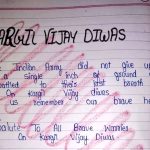 KARGIL VIJAY DIWAS
Indian Army did not give up
a single inch of ground
battled to that's last breath
On Kargil Vijay diwas
us remember our brave he
Salute To All Brave Warriors
On Kargil Vijay Diwas